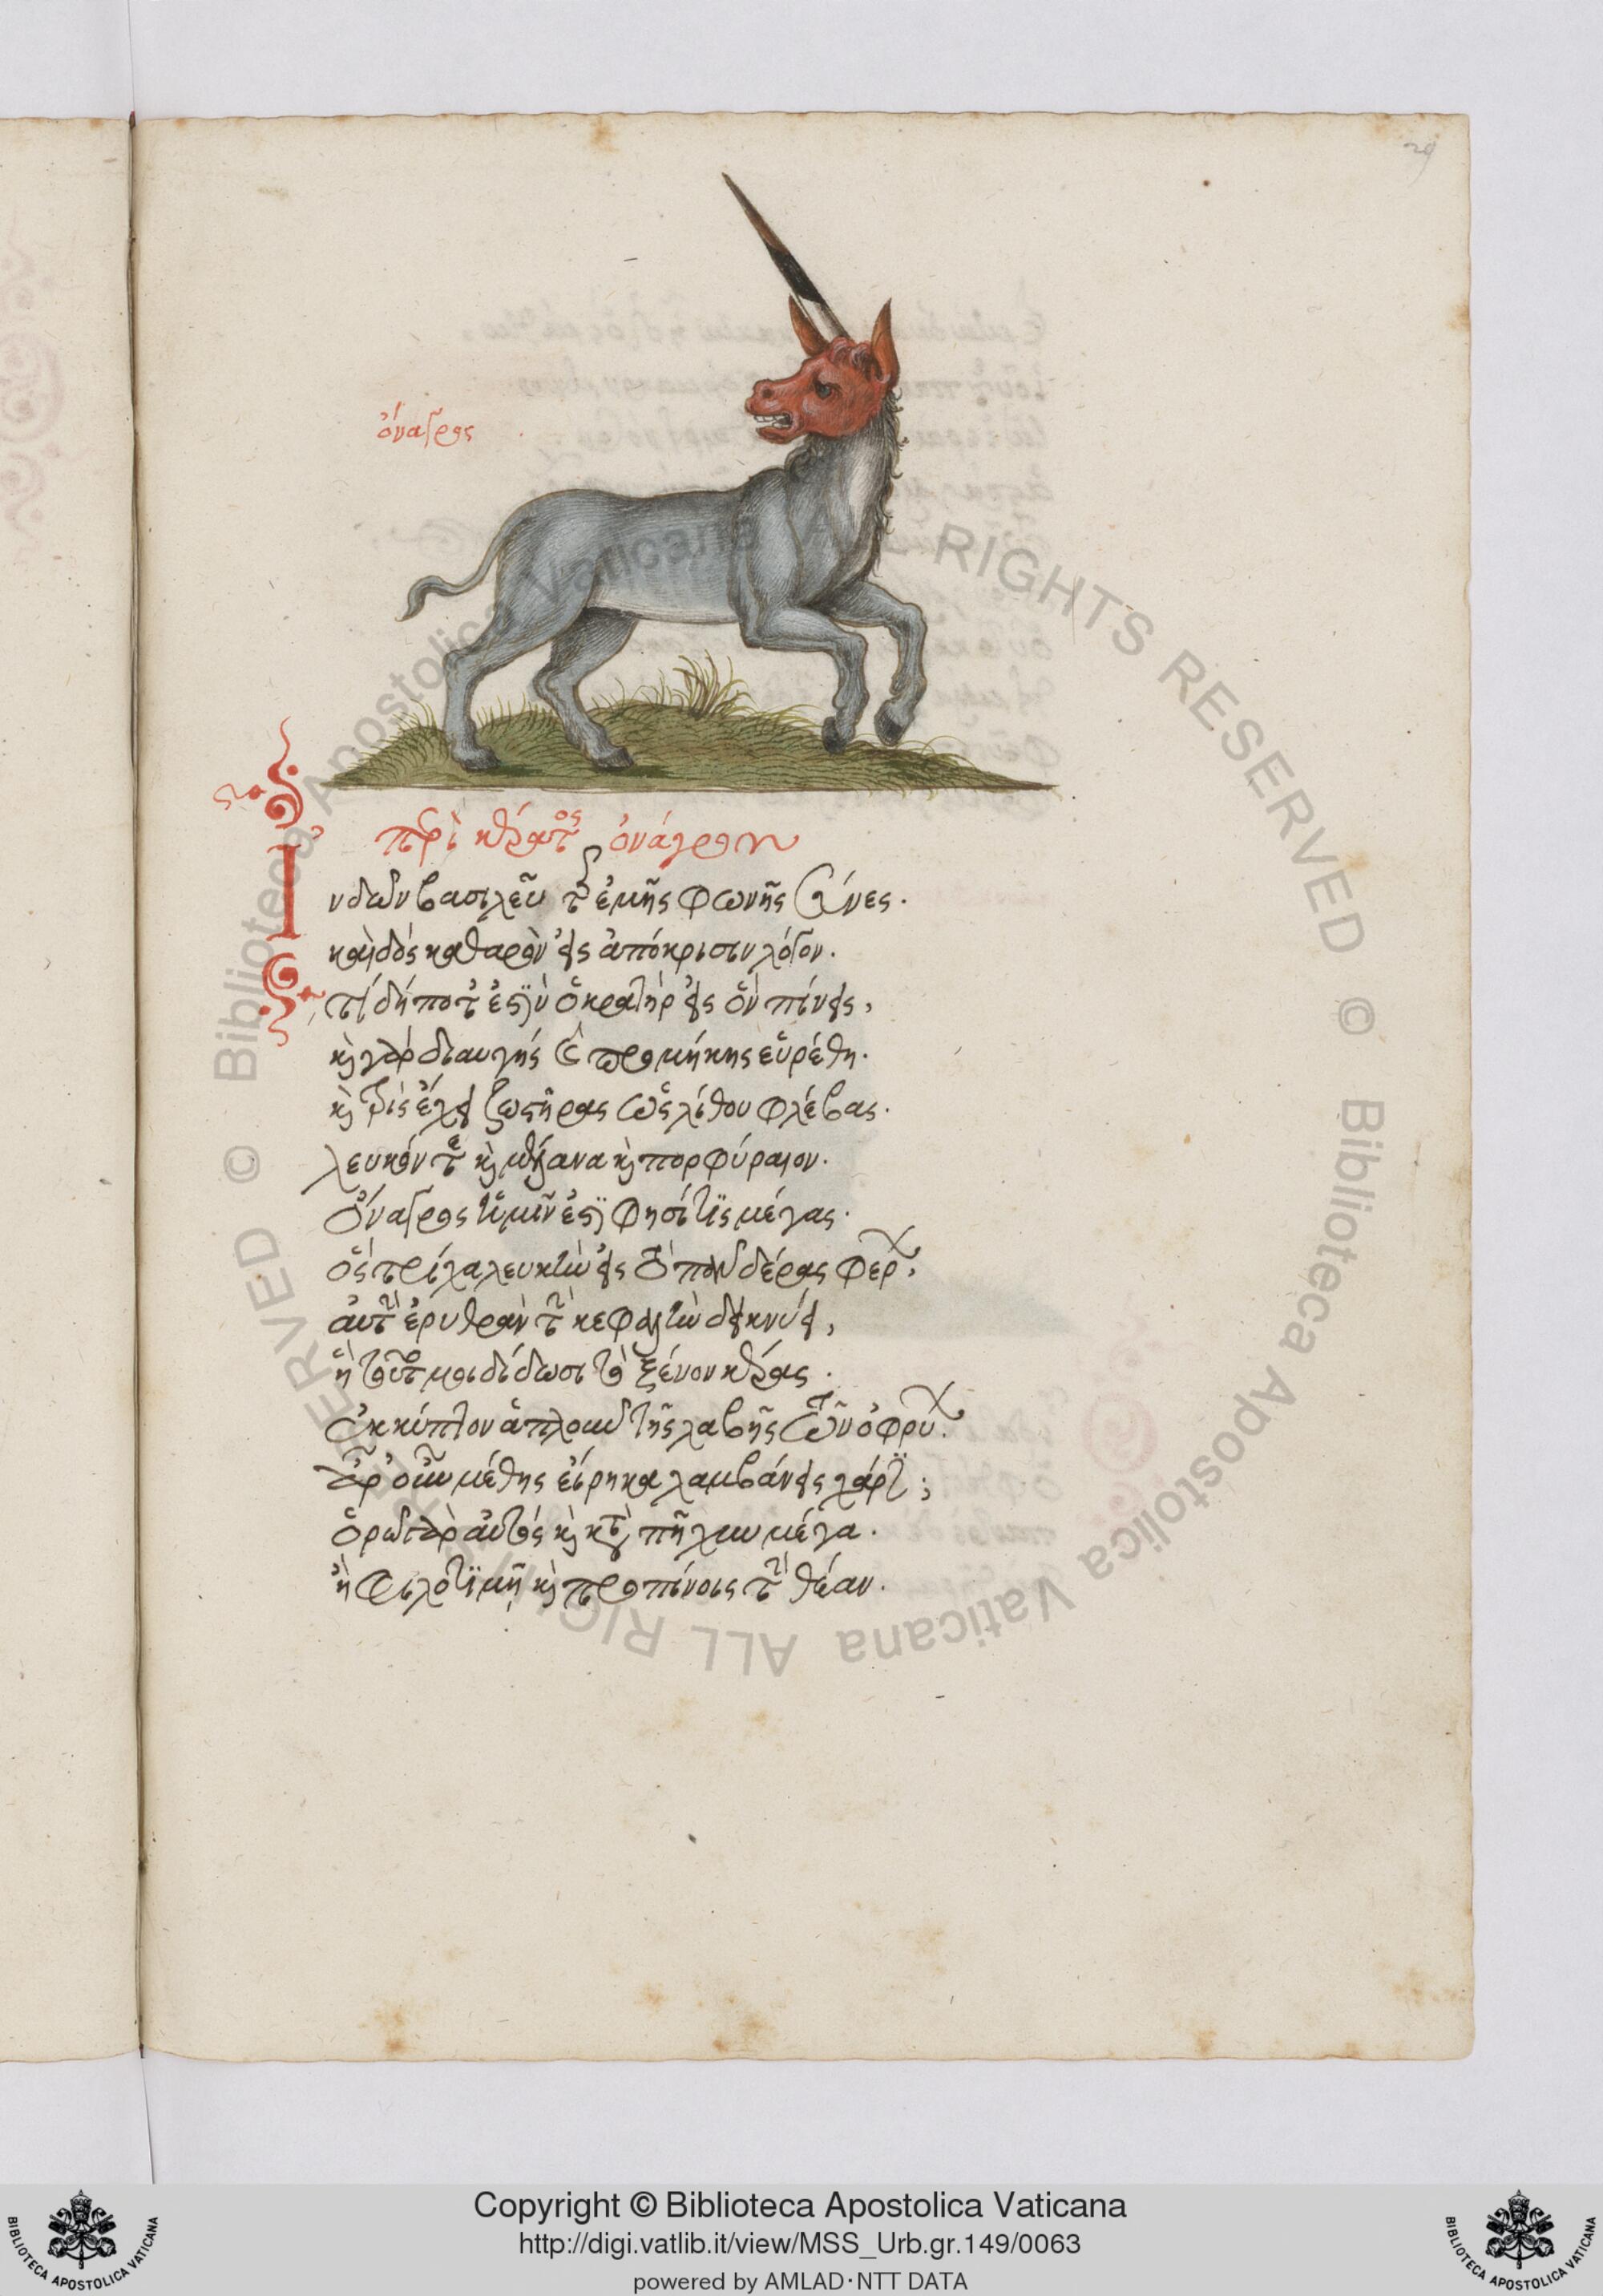 29
ὄναγρος
περὶ κέρατος ὀνάγρου
Ἰνδῶν βασιλεῦ τῆς ἐμῆς φωνῆς
καὶ δὸς καθαρὸν εἰς ἀπόκρισιν λόγον.
τί δήποτ' ἐστὶν ὁ κρατὴρ εἰς ὃν πίνεις,
καὶ γὰρ διαυγὴς προμήκης εὑρέθη.
καὶ τρὶς ἔχει ζωστῆρας ὡς λίθου φλέβας.
λευκόν τε καὶ μέλανα καὶ πορφύραιον.
Ὄναγρος ἡμῖν ἐστὶ φησί τις μέγας.
ὃς τρίχα λευκὴν εἰς δέρας φέρει,
αὐτὴν ἐρυθρὰν τὴν κεφαλὴν δεικνύει,
ξένον κέρας.
Ἐκκύπτον ἁπλοῦν τῆς λαβῆς τῶν ὀφρύων.
εἴρηκα λαμβάνεις χάριν;
ὁρῶ γὰρ αὐτὸς καὶ πῆχυν μέγα.
ἢ φιλοτιμῇ καὶ προπίνοις τὴν θέαν.
Biblioteca Apostolica Vaticana ALL RIGHTS RESERVED ©
Biblioteca Apostolica Vaticana ALL RIGHTS RESERVED ©
BIBLIOTECA APOSTOLICA VATICANA
Copyright © Biblioteca Apostolica Vaticana
http://digi.vatlib.it/view/MSS_Urb.gr.149/0063
powered by AMLAD·NTT DATA
BIBLIOTECA APOSTOLICA VATICANA